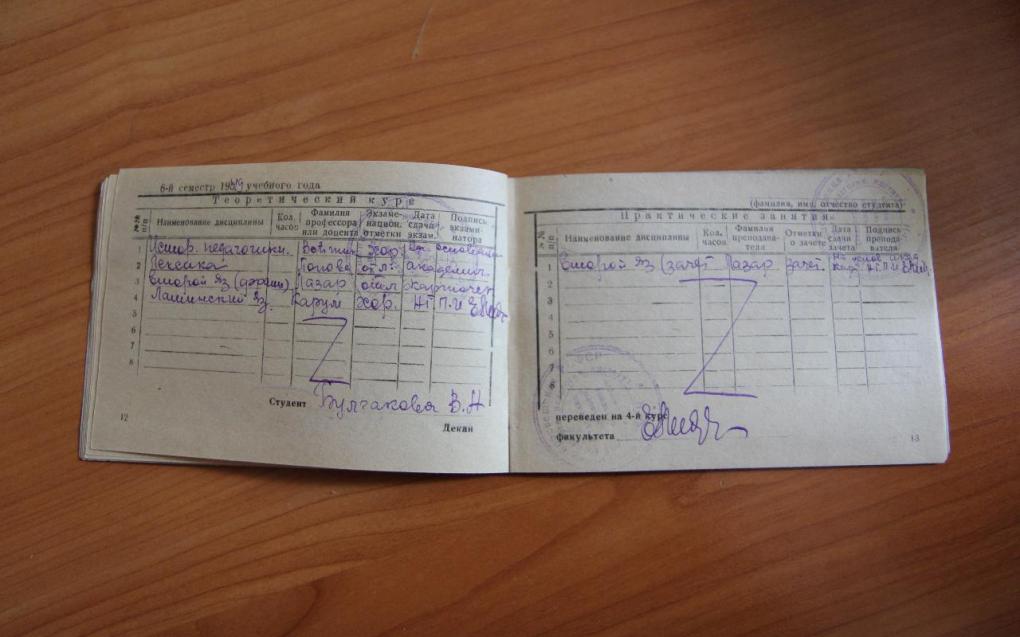 6-й семестр 19 49 учебного года
Теоретический курс
№№ п/п
Наименование дисциплины
Кол. часов
Фамилия профессора или доцента
Экзаменацион. отметки
Дата сдачи экзам.
Подпись экзаминатора
Истор. педагогики. хор На основании
2 Лексика Попова отл. академич.
3 Второй яз Лазар отл карточек
4 Латинский яз. Карум хор. НГПИ
5
6
7
8
Студент Булгакова В. Н
12
Декан
(фамилия, имя, отчество студента)
Практические занятия
№№ п/п
Наименование дисциплины
Кол. часов
Фамилия преподавателя
Отметки о зачете
Дата сдачи зачета
Подпись преподавателя
1 Второй яз (зачет Лазар зачет. НГПИ
2
3
4
5
6
7
8
переведен на 4-й курс
факультета
13